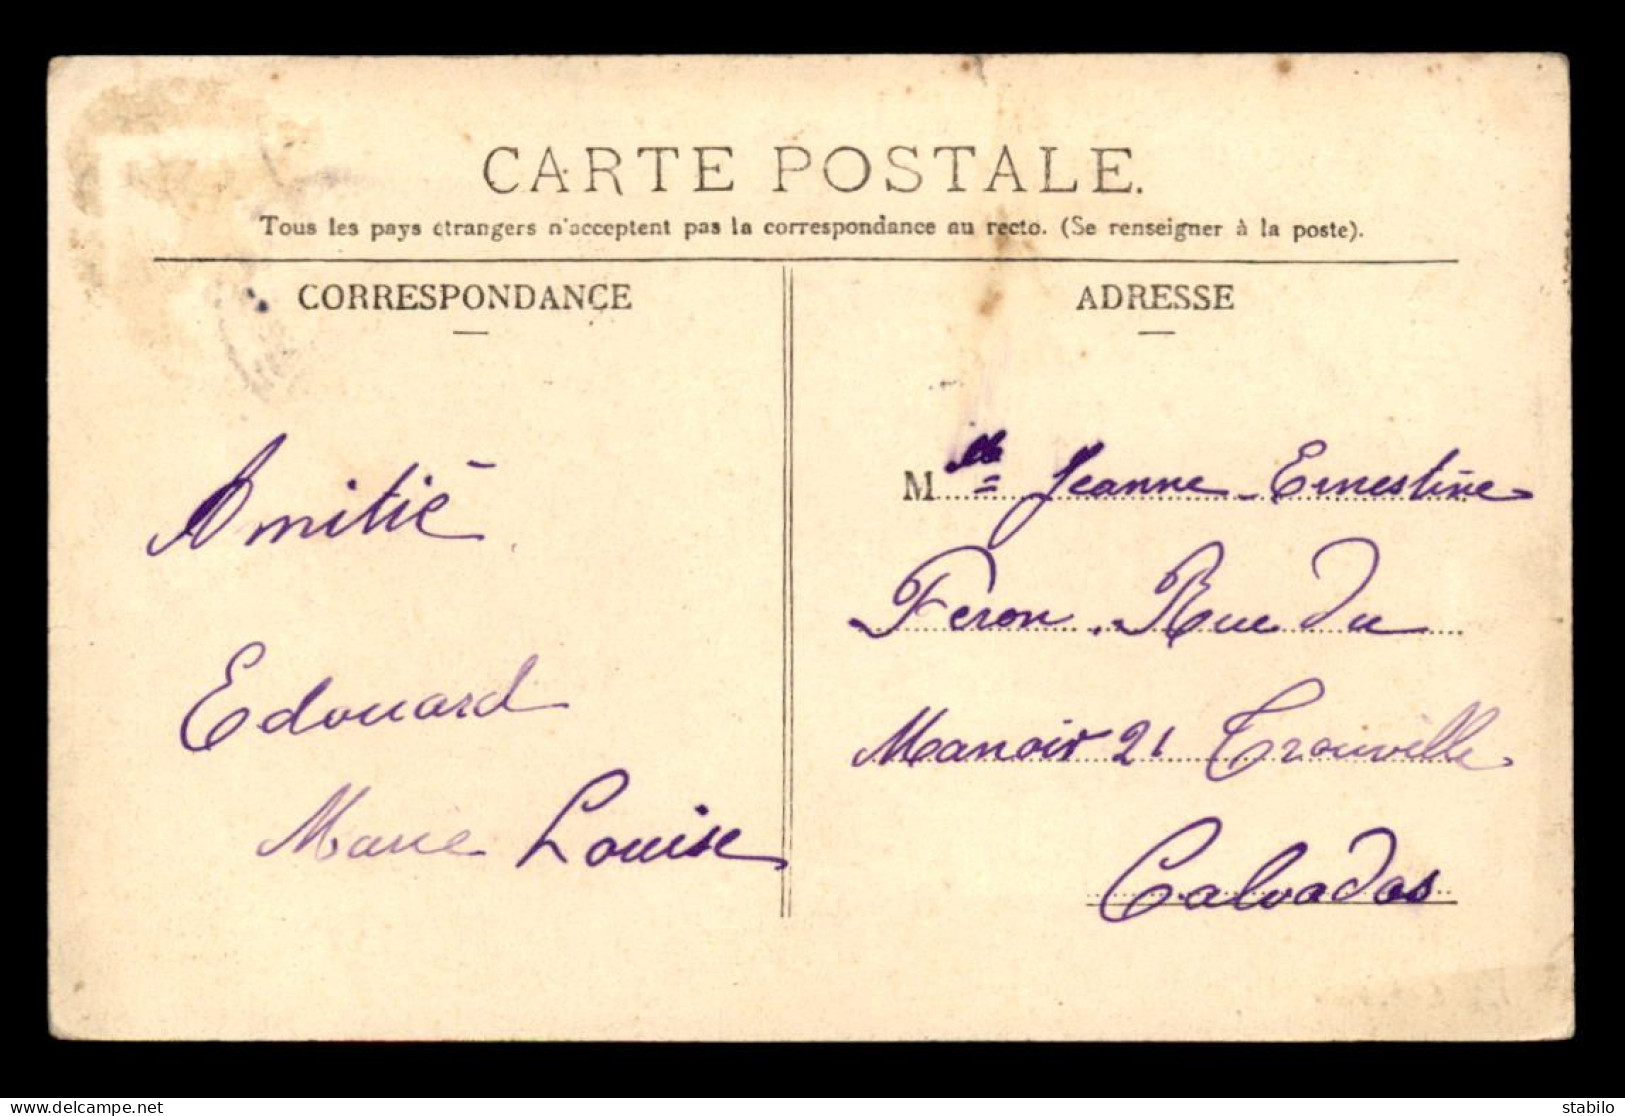 CARTE POSTALE.
Tous les pays étrangers n'acceptent pas la correspondance au recto. (Se renseigner à la poste).
CORRESPONDANCE
Amitié
Edouard
Marie Louise
ADRESSE
Mlle Jeanne-Ernestine
Feron. Rue du
Manoir 21 Trouville
Calvados
www.delcampe.net
stabilo